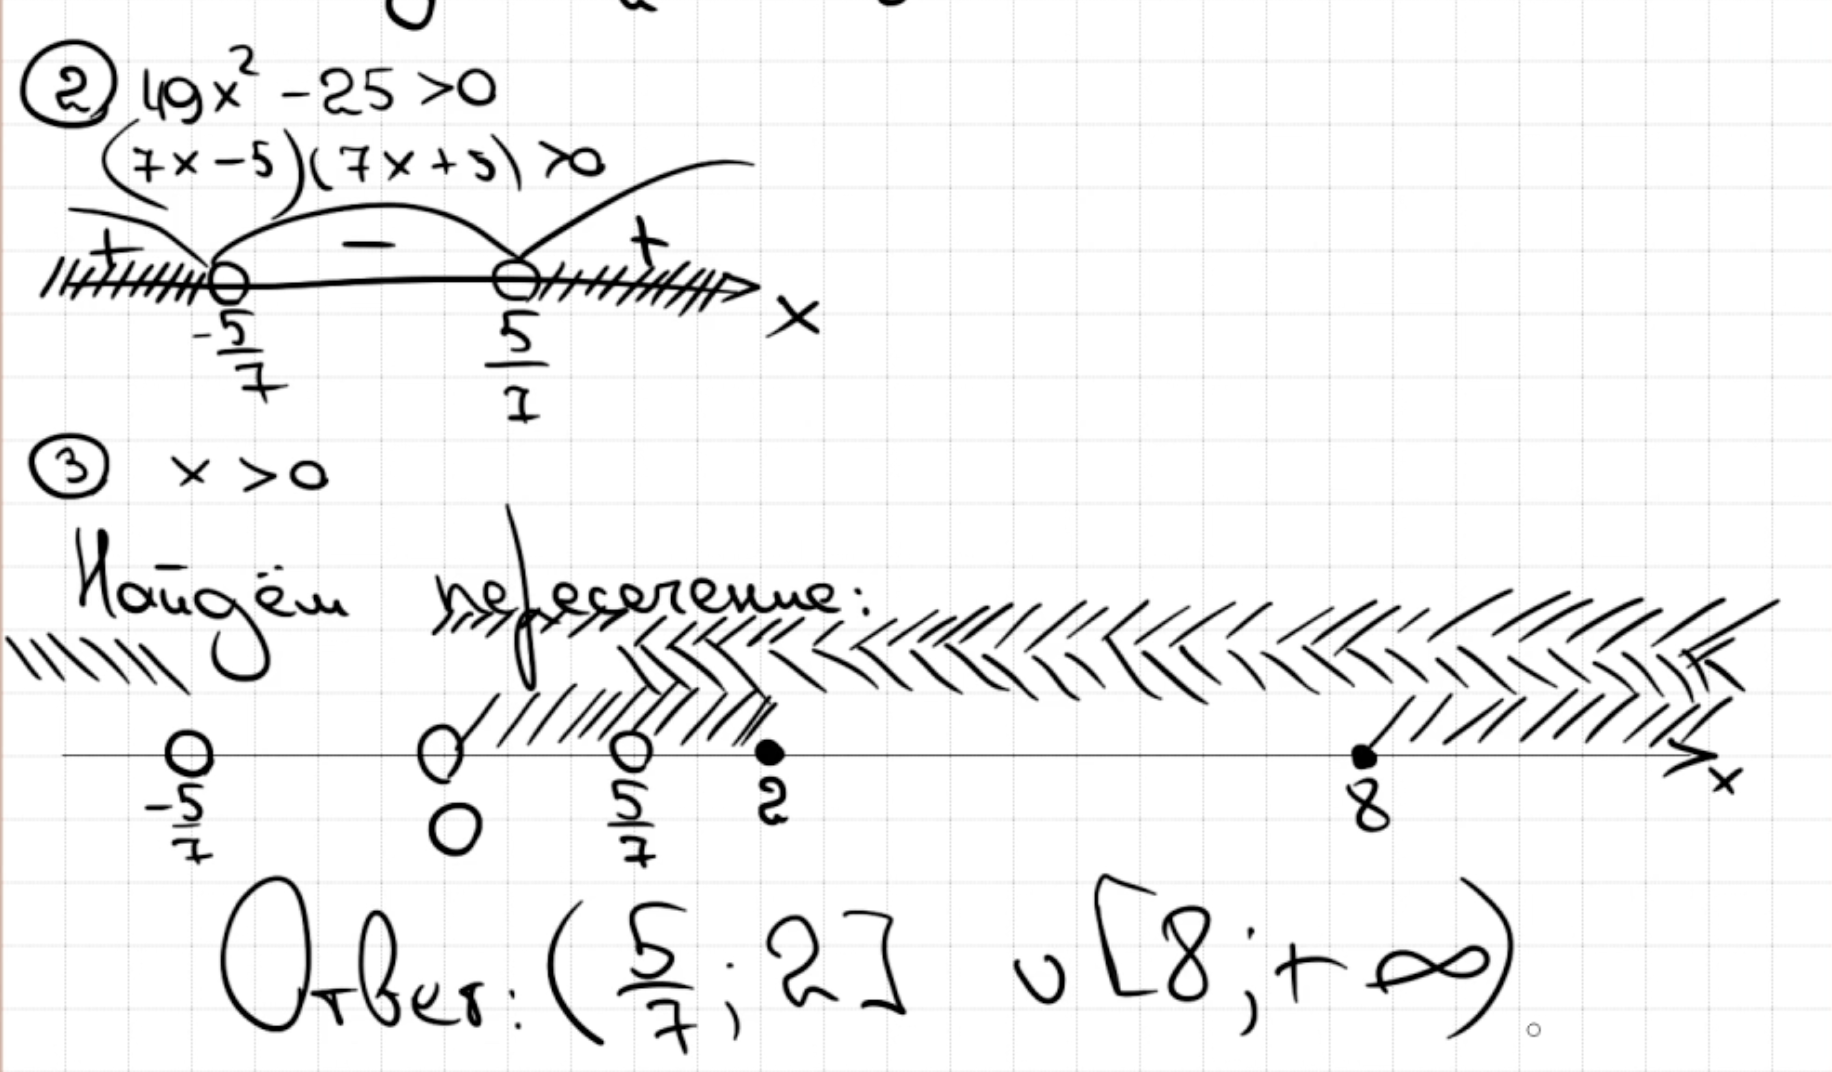 ② 49x² - 25 > 0
(7x - 5)(7x + 5) > 0
+ - +
-5/7 5/7 x
③ x > 0
Найдём пересечение:
-5/7 0 5/7 2 8 x
Ответ: (5/7; 2] ∪ [8; +∞).